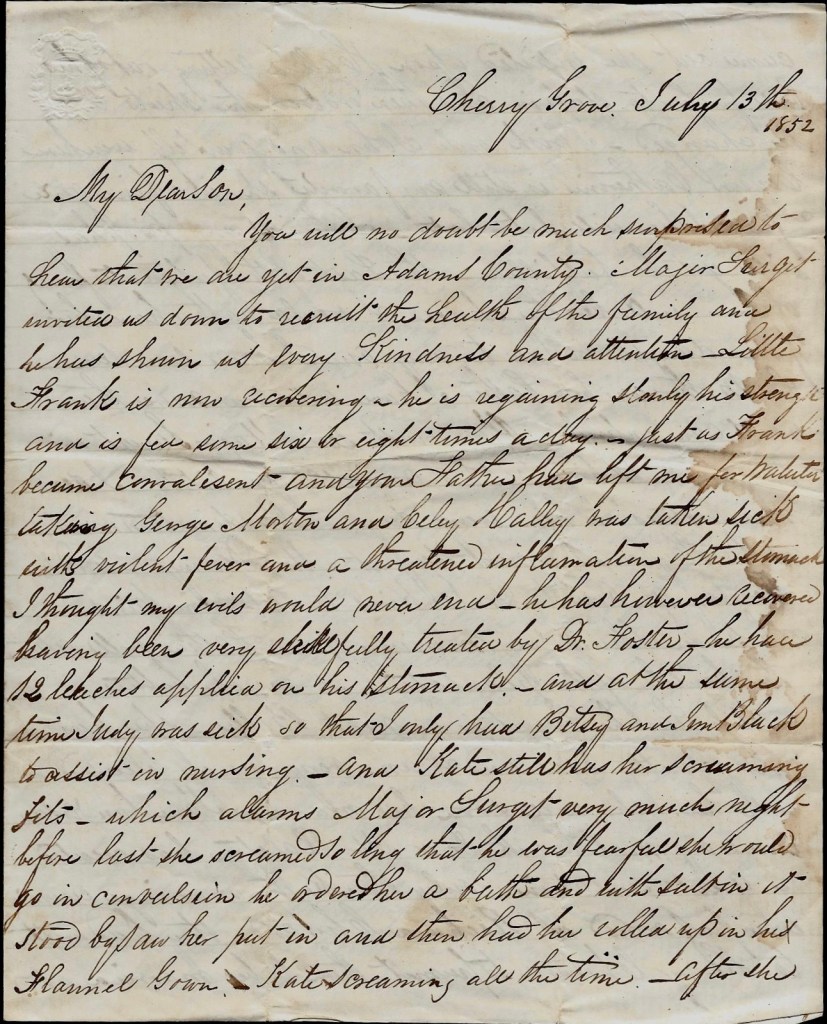 Cherry Grove. July 13th
1852
My Dear Son,
You will no doubt be much surprised to
hear that we are yet in Adams County. Major Surget
invited us down to recruit the health of the family and
he has shown us every Kindness and attention - Little
Frank is now recovering - he is regaining slowly his strength
and is fed some six or eight times a day. - just as Frank
became convalesent - and your Father had left me for
taking George Morton and Celey Halley was taken sick
with violent fever and a threatened inflamation of the stomach
I thought my evils would never end - he has however recovered
having been very skillfully treated by Dr. Foster - he had
12 leaches applied on his stomach. - and at the same
time Judy was sick so that I only had Betsey and Jim Black
to assist in nursing. - and Kate still has her screaming
fits - which alarms Major Surget very much night
before last she screamed so long that he was fearful she would
go in convulsion he ordered her a bath and with salt in it
stood by saw her put in and then had her rolled up in his
Flannel Gown. - Kate screaming all the time. - after she